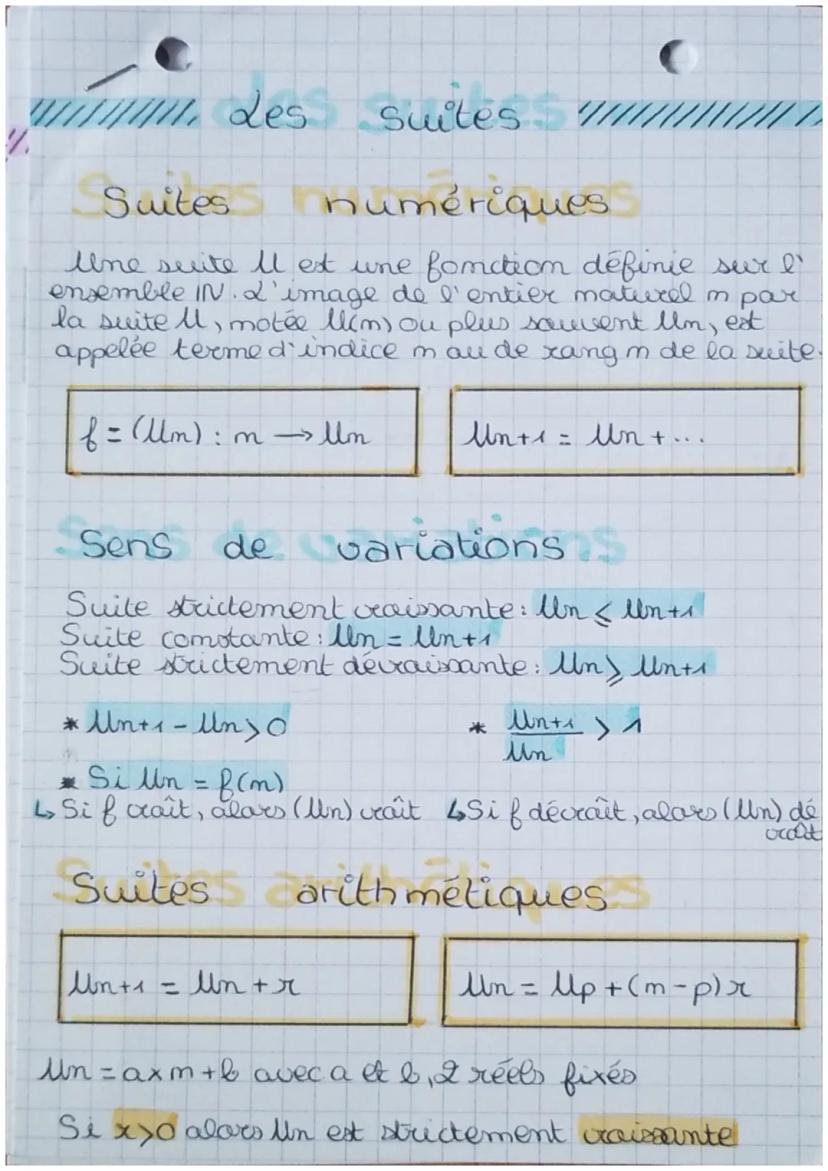 Les suites
Suites numériques
Une suite U est une fonction définie sur l'
ensemble IN. L'image de l'entier naturel n par
la suite U, notée U(n) ou plus souvent Un, est
appelée terme d'indice n ou de rang n de la suite.
f = (Un) : n → Un
Un+1 = Un + ...
Sens de variations
Suite strictement croissante : Un ⩽ Un+1
Suite constante : Un = Un+1
Suite strictement décroissante : Un ⩾ Un+1
* Un+1 - Un > 0
* Un+1 / Un > 1
* Si Un = f(n)
↳ Si f croît, alors (Un) croît ↳ Si f décroît, alors (Un) dé
croît
Suites arithmétiques
Un+1 = Un + r
Un = Up + (n-p) r
Un = a×n + b avec a et b, 2 réels fixés
Si r>0 alors Un est strictement croissante